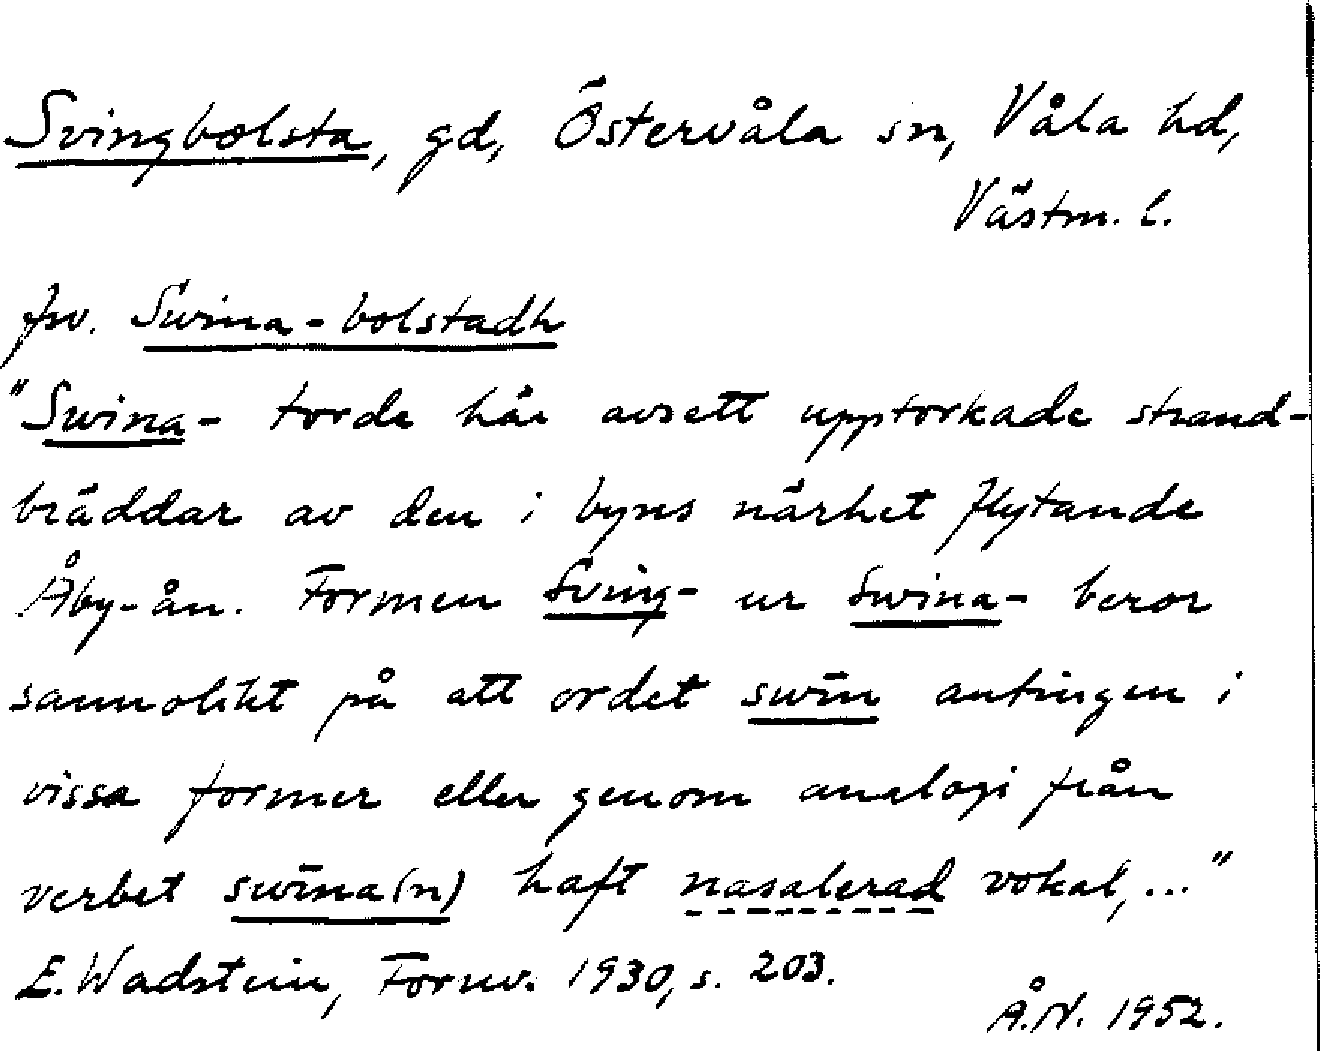 Svingbolsta, gd, Östervåla sn, Våla hd,
Västm. l.
fsv. Swina-bolstadh
"Swina- torde här avsett upptorkade strand-
bräddar av den i byns närhet flytande
Åby-ån. Formen Sving- ur Swina- beror
sannolikt på att ordet swīn antingen i
vissa former eller genom analogi från
verbet swīna(n) haft nasalerad vokal,..."
E. Wadstein, Fornv. 1930, s. 203.
Å.N. 1952.